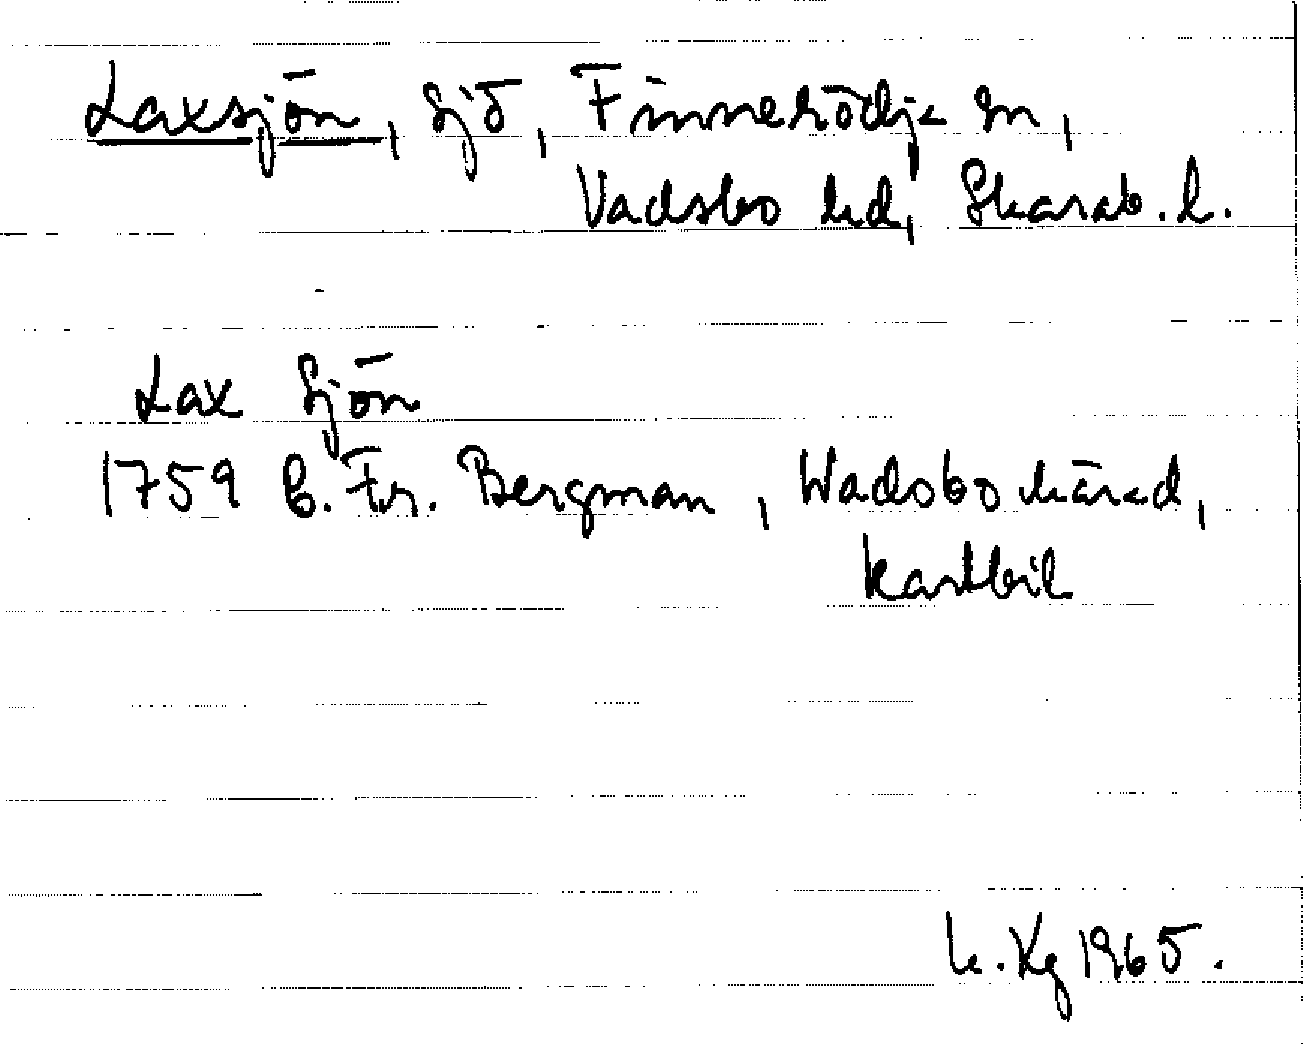 Laxsjön, sjö, Finnerödja sn,
Vadsbo hd, Skarab. l.
Lax Sjön
1759 B. Fr. Bergman, Wadsbo härad,
kartbil
K. Kg 1965.